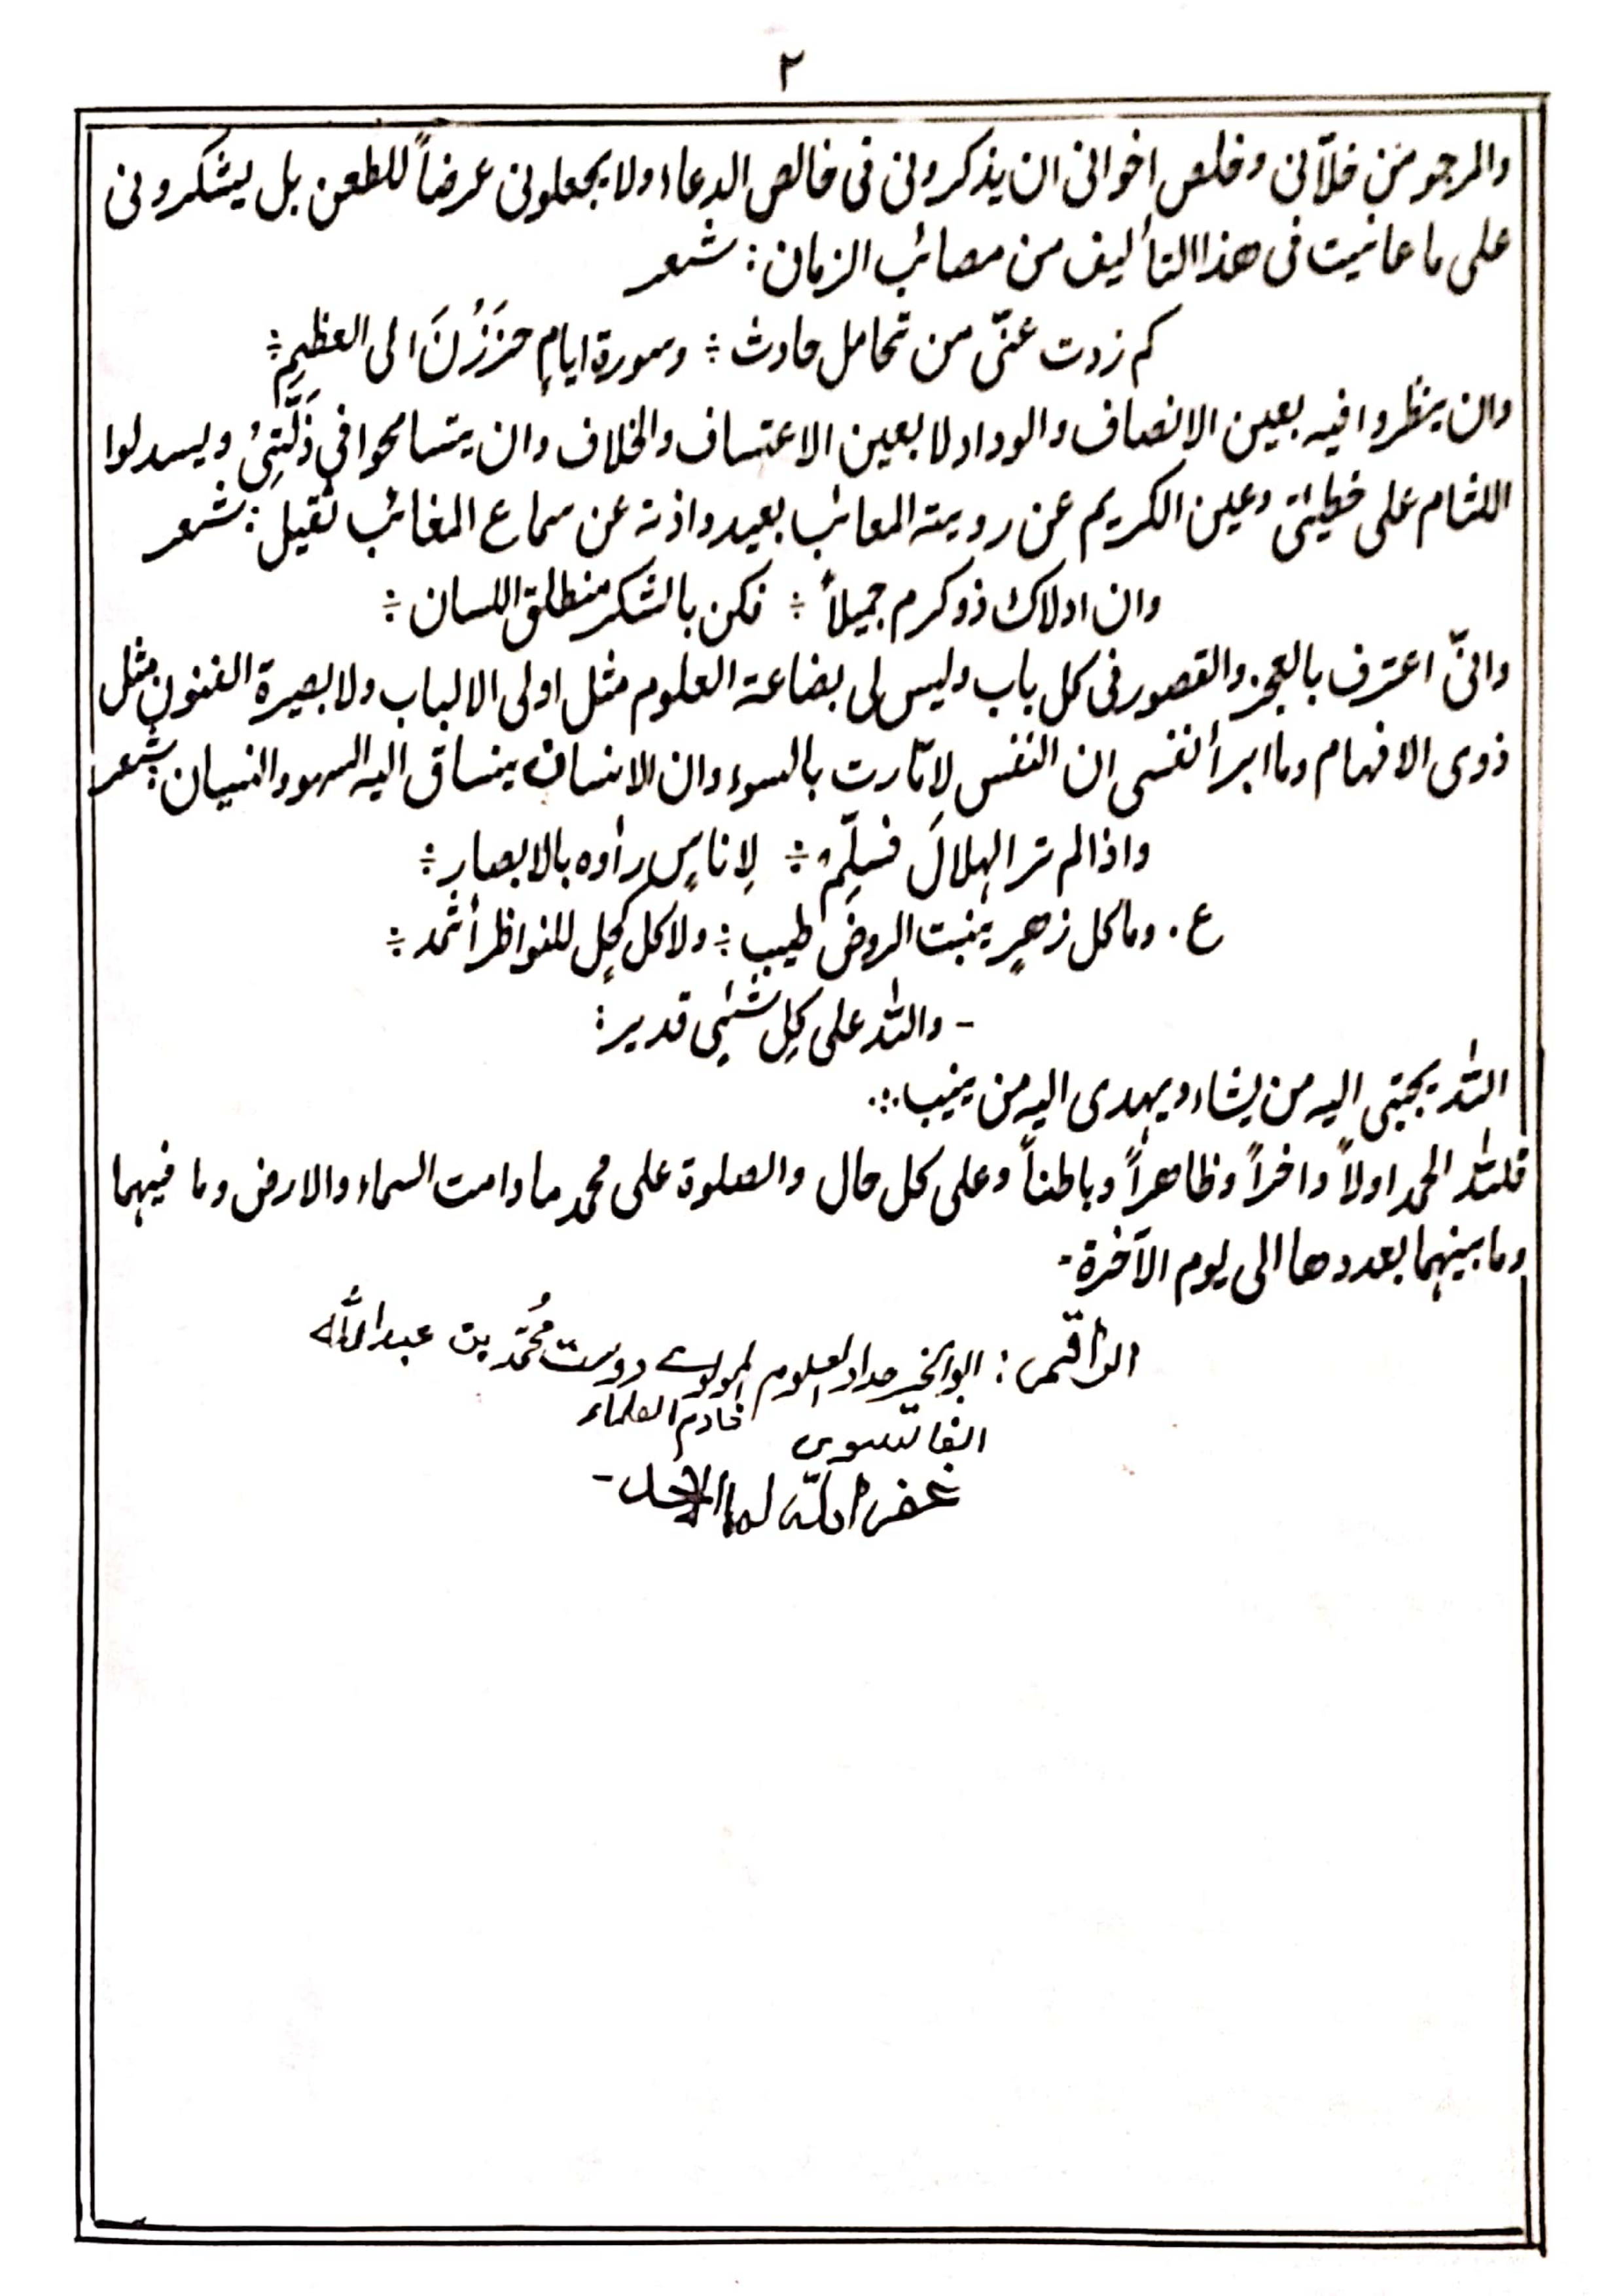 ٢
والمرجو من خلّانی وخلص اخوانی ان یذکرونی فی خالص الدعاء ولا یجعلونی عرضاً للطعن بل یشکرونی
علی ما عانیت فی هذا التألیف من مصائب الزمان : شعر
کم زدت عنّی من تحامل حادث ÷ وسورة ایامٍ حززُنَ الی العظیمِ ÷
وان ینظروا فیه بعین الانصاف والوداد لا بعین الاعتساف والخلاف وان یتسامحوا فی ذَلّتِیْ ویسدلوا
اللثام علی خطیئتی وعین الکریم عن رویة المعائب بعید واذنه عن سماع المغائب ثقیل : شعر
وان اولاک ذوکرم جمیلاً ÷ فکن بالشکر منطلق اللسان ÷
وانّی اعترف بالعجز والقصور فی کل باب ولیس لی بضاعة العلوم مثل اولی الالباب ولا بصیرة الفنون مثل
ذوی الافهام وما ابرأ نفسی ان النفس لامّارت بالسوء وان الانسان ینساق الیه السهو والنسیان : شعر
واذا لم تر الهلالَ فسلّم ÷ لِاناسٍ رأوه بالابصارِ ÷
ع . وما کل زهرٍ ینبت الروض طیب ÷ ولا کل کحلٍ للنواظر أثمد ÷
- والله علی کلِ شئیٍ قدیر :
الله یجتبی الیه من یشاء ویهدی الیه من ینیب ...
فلله الحمد اولاً واخراً وظاهراً وباطناً وعلی کل حال والصلوة علی محمد ما دامت السماء والارض وما فیهما
وما بینهما بعددها الی یوم الآخرة -
الراقم : ابوالخیر مداد العلوم المولوے دوست مُحَمّد بن عبدالله
خادم العلماء
غفر الله لهما